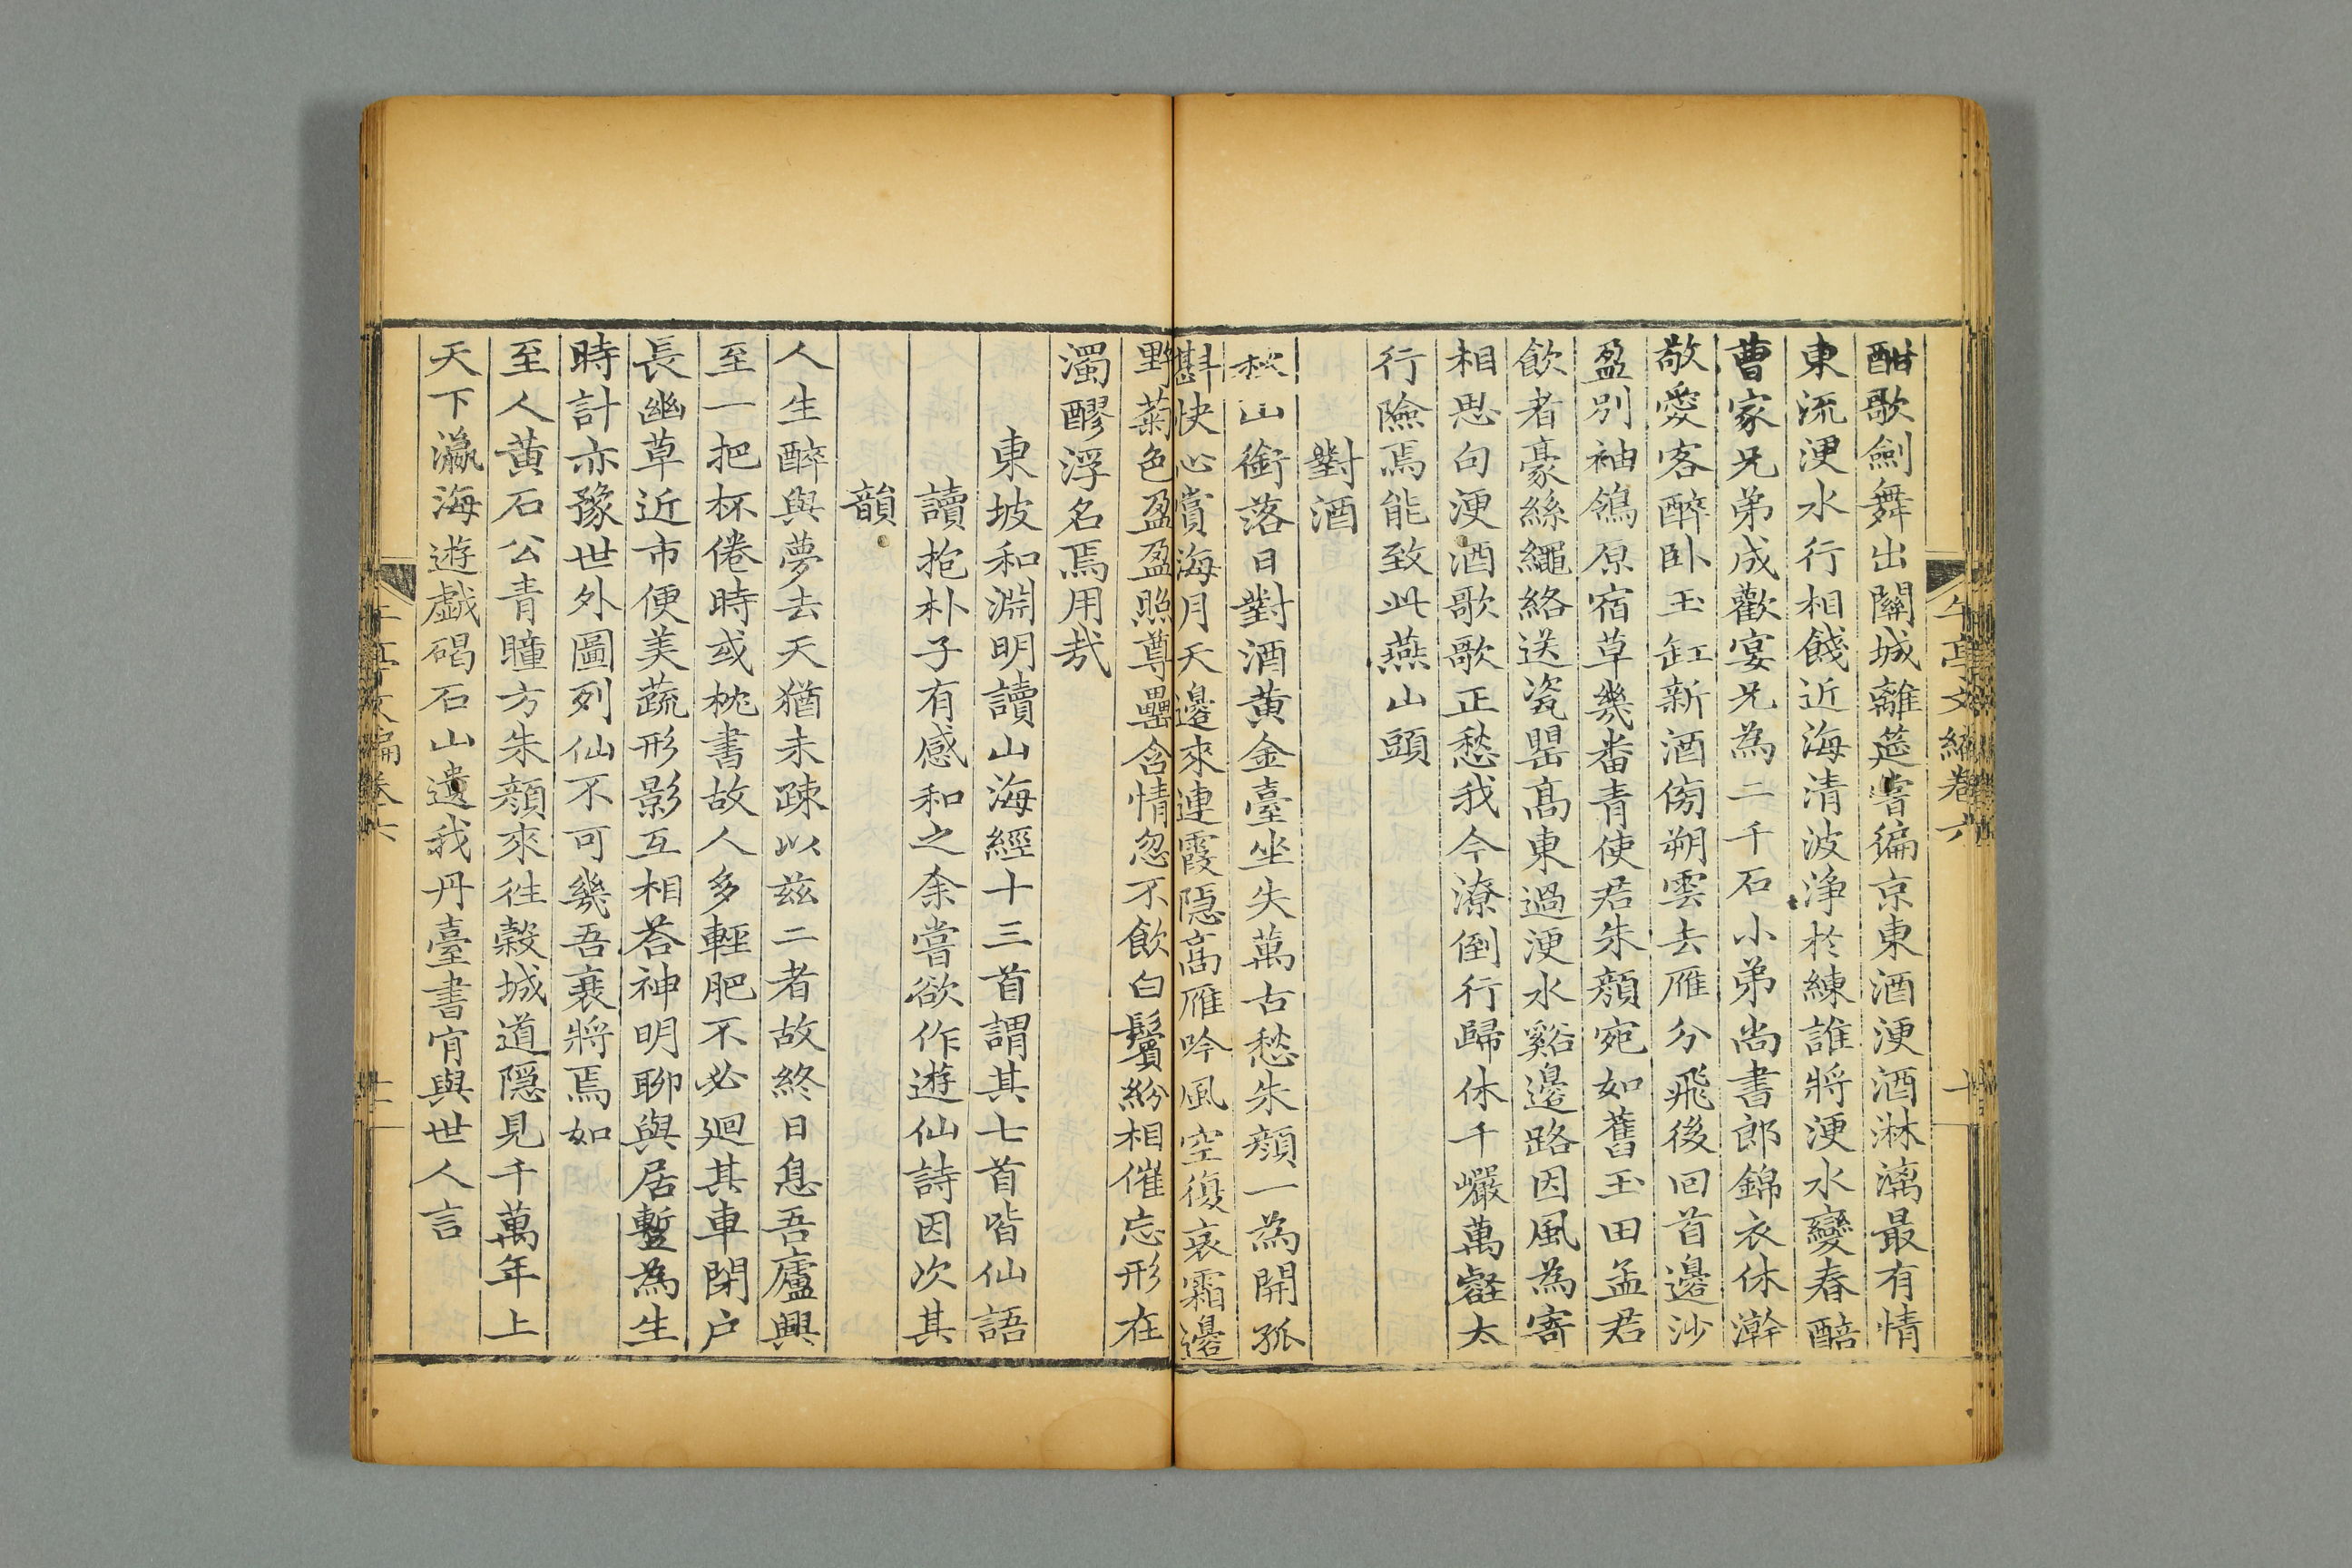 酣歌劍舞出關城離筵嘗徧京東酒浭酒淋漓最有情
東流浭水行相餞近海清波淨於練誰將浭水變春醅
曹家兄弟成歡宴兄為二千石小弟尚書郎錦衣休澣
敬愛客醉臥玉缸新酒傍朔雲去雁分飛後回首邊沙
盈別袖鴒原宿草幾番青使君朱顏宛如舊玉田孟君
飲者豪絲繩絡送瓷甖高東過浭水谿邊路因風為寄
相思句浭酒歌歌正愁我今潦倒行歸休千巖萬壑太
行險焉能致此燕山頭
對酒
秋山銜落日對酒黃金臺坐失萬古愁朱顏一為開孤
斟快心賞海月天邊來連霞隱高雁吟風空復哀霜邊
野菊色盈盈照尊罍含情忽不飲白鬢紛相催忘形在
濁醪浮名焉用哉
東坡和淵明讀山海經十三首謂其七首皆仙語
讀抱朴子有感和之余嘗欲作遊仙詩因次其
韻
人生醉與夢去天猶未疎以茲二者故終日息吾廬興
至一把杯倦時或枕書故人多輕肥不必迴其車閉戶
長幽草近市便美蔬形影互相荅神明聊與居蹔為生
時計亦豫世外圖列仙不可幾吾衰將焉如
至人黃石公青瞳方朱顏來徃穀城道隱見千萬年上
天下瀛海遊戲碣石山遺我丹臺書肯與世人言
午亭文編卷六
十
午亭文編卷六
十一